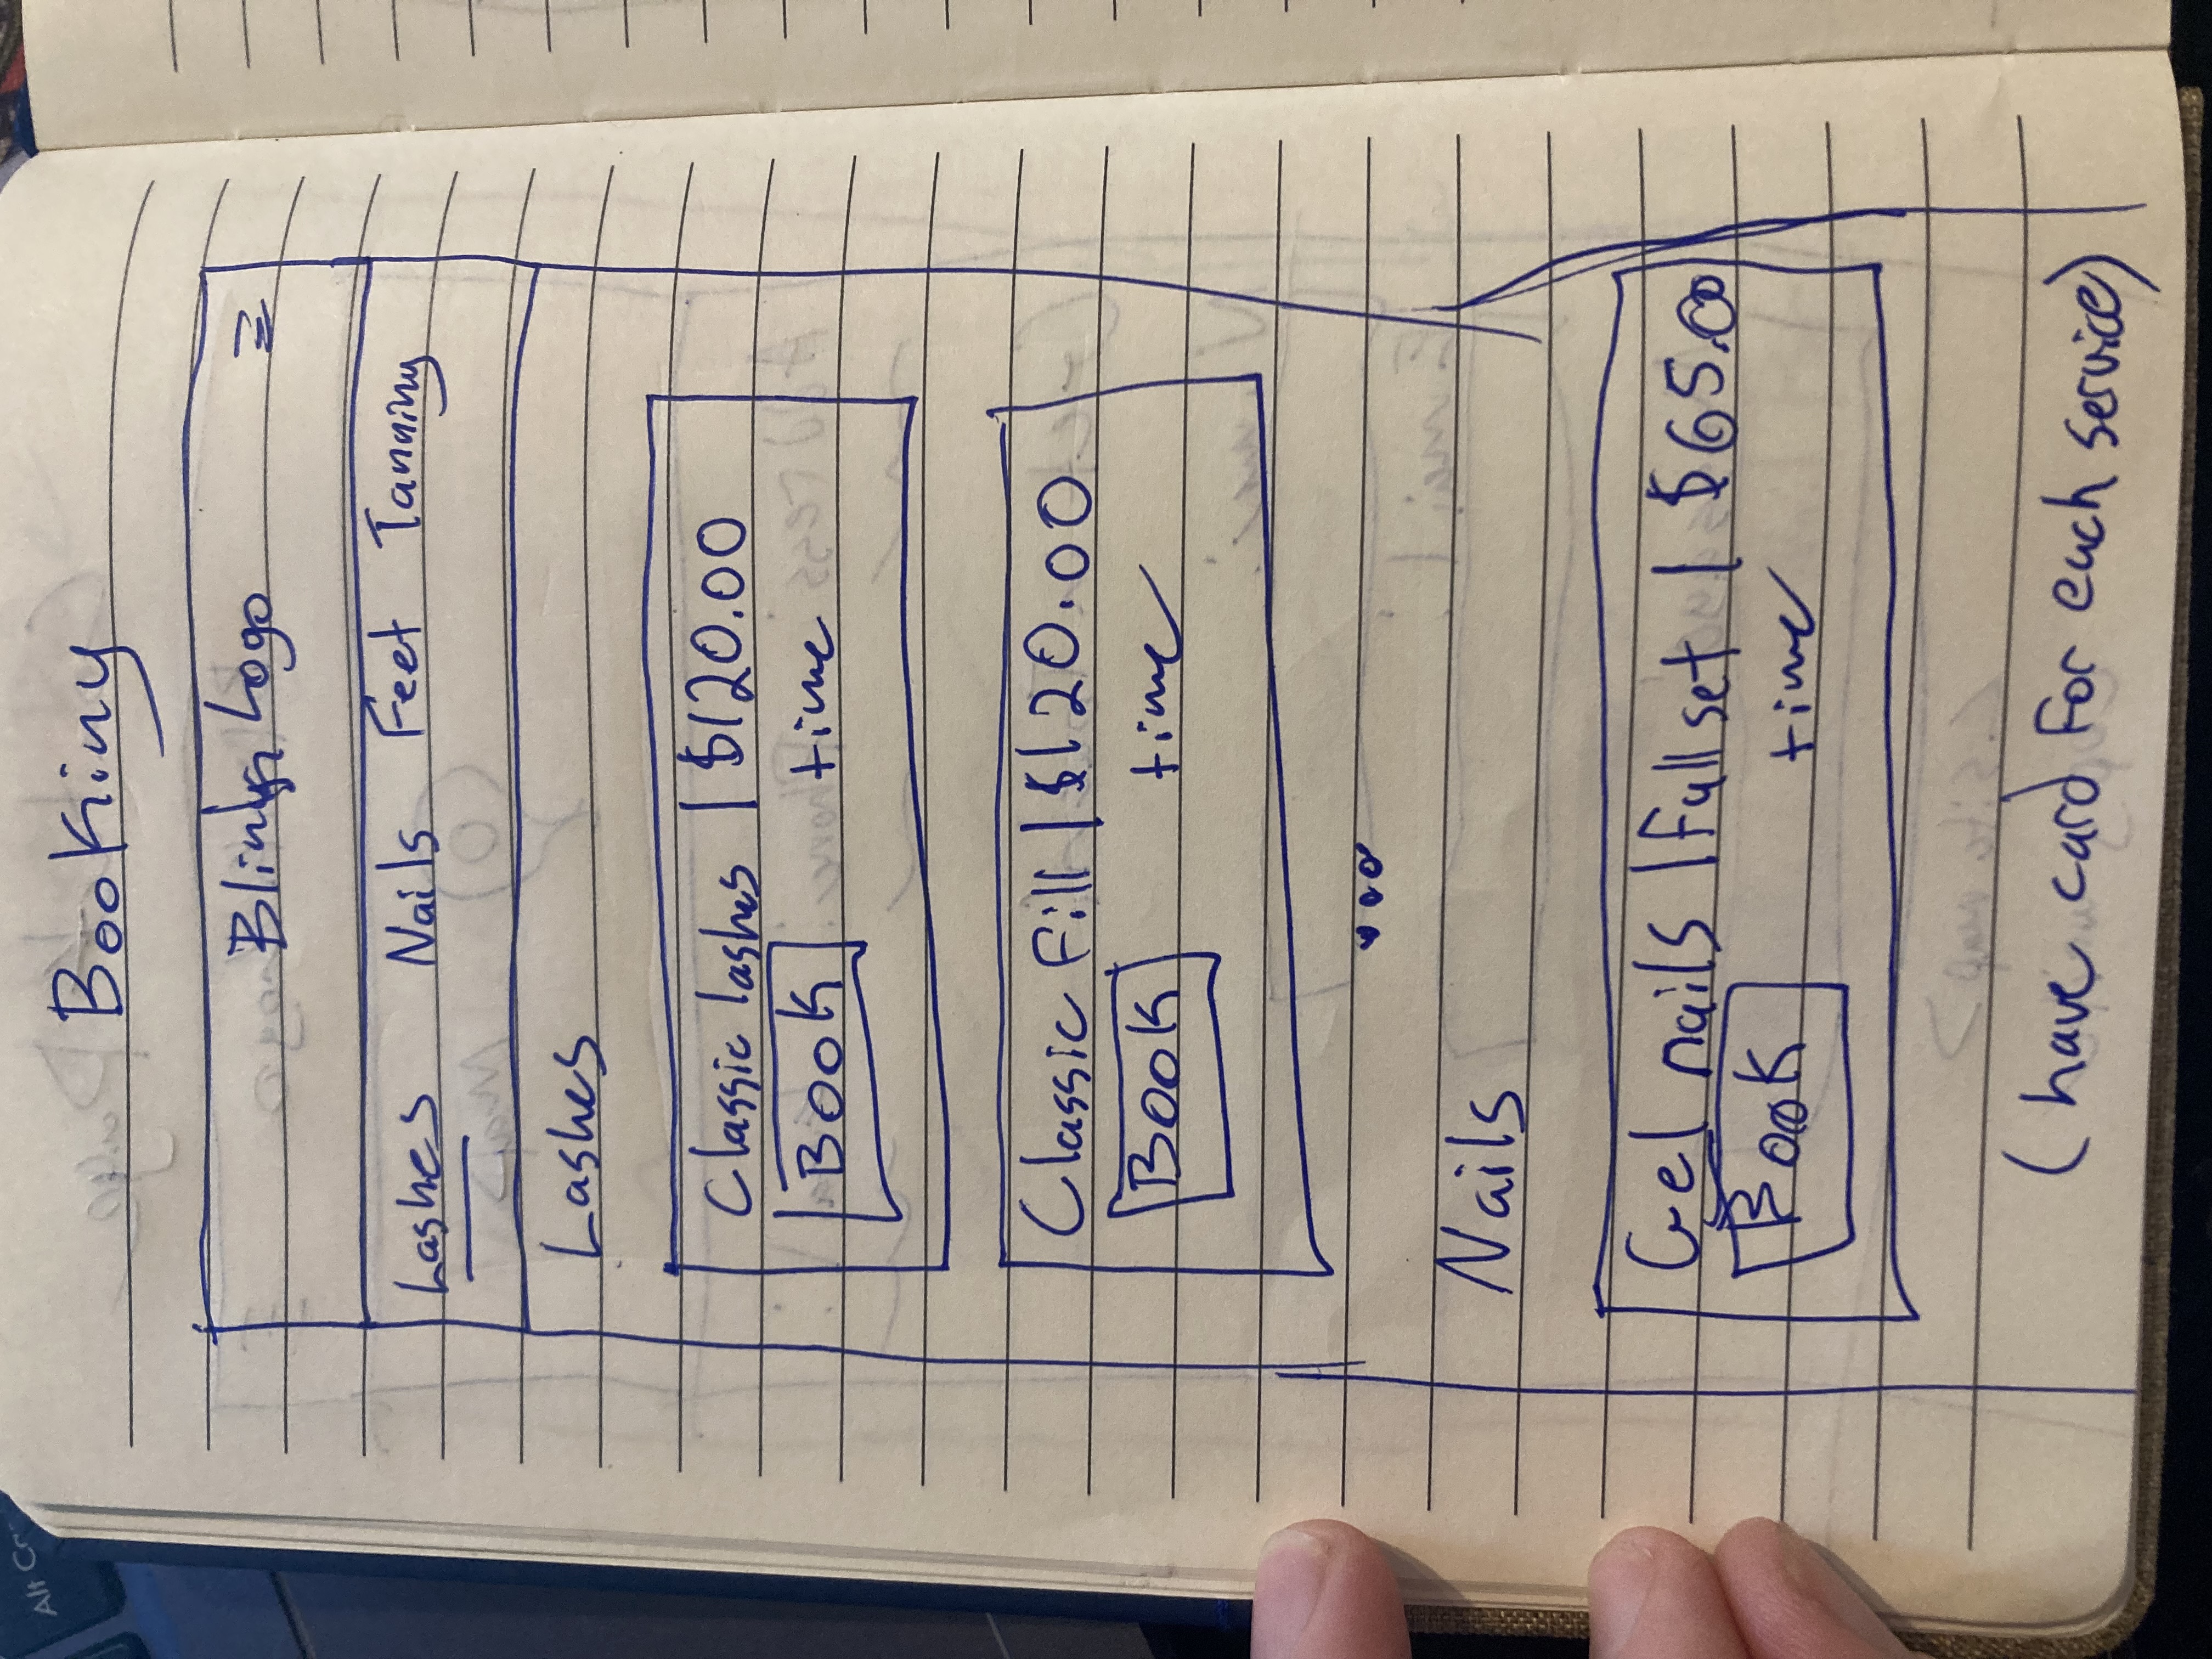 Alt
Booking
Logo ☰
Lashes Nails Feet Tanning
Lashes
Classic lashes | $120.00
Book time
Classic Fill | $120.00
Book time
...
Nails
Gel nails | Full set | $65.00
Book time
(have card for each service)